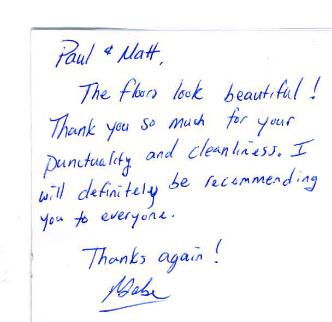 Paul & Matt,
The floors look beautiful!
Thank you so much for your
punctuality and cleanliness. I
will definitely be recommending
you to everyone.
Thanks again!
Gabe